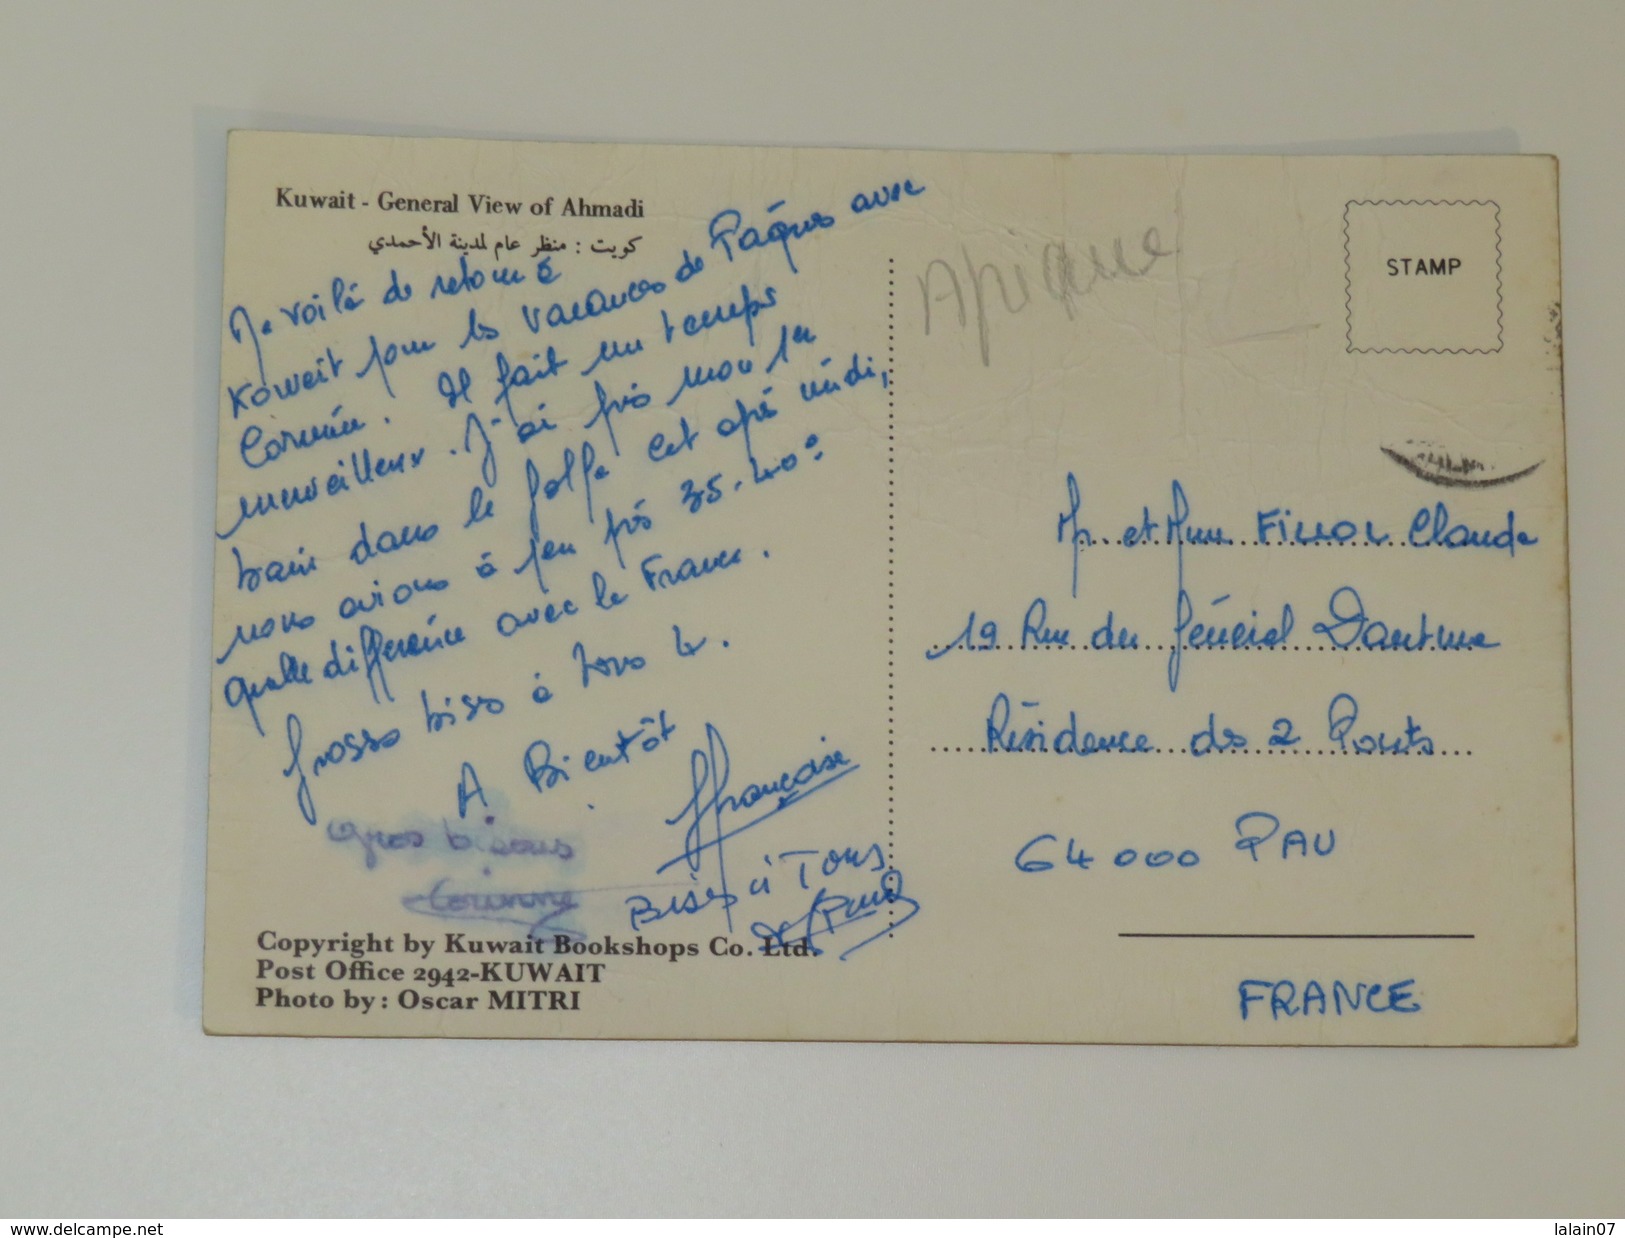 Kuwait - General View of Ahmadi
كويت : منظر عام لمدينة الأحمدي
Me voilà de retour à
Koweit pour les vacances de Pâques avec
Corinne. Il fait un temps
merveilleux. J'ai pris mon 1er
bain dans le golfe cet après midi,
nous avions à peu près 35-40°
quelle différence avec la France.
Grosses bises à tous 4.
A Bientôt
Françoise
Gros bisous
Corinne
Bises à Tous
Copyright by Kuwait Bookshops Co. Ltd.
Post Office 2942-KUWAIT
Photo by: Oscar MITRI
STAMP
Mr et Mme FILLOL Claude
19 Rue du Général Dauture
Résidence des 2 Ponts
64000 PAU
FRANCE
www.delcampe.net
lalain07